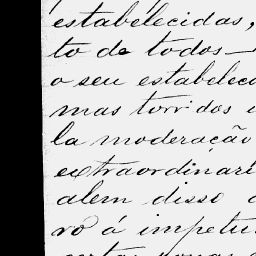 estabelecidas,
to de todos—
o seu estabelec
mas torridos
la moderação
extraordinari
alem disso
ro á impetu